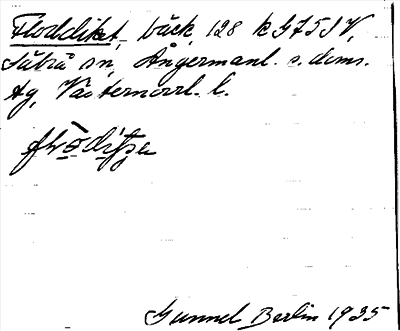 Floddiket, bäck, 128 k G7515V,
Sätrå sn, Ångermanl. s. doms.
Ag, Västernorrl. l.
flṑditʒə
Gunnel Berlin 1935